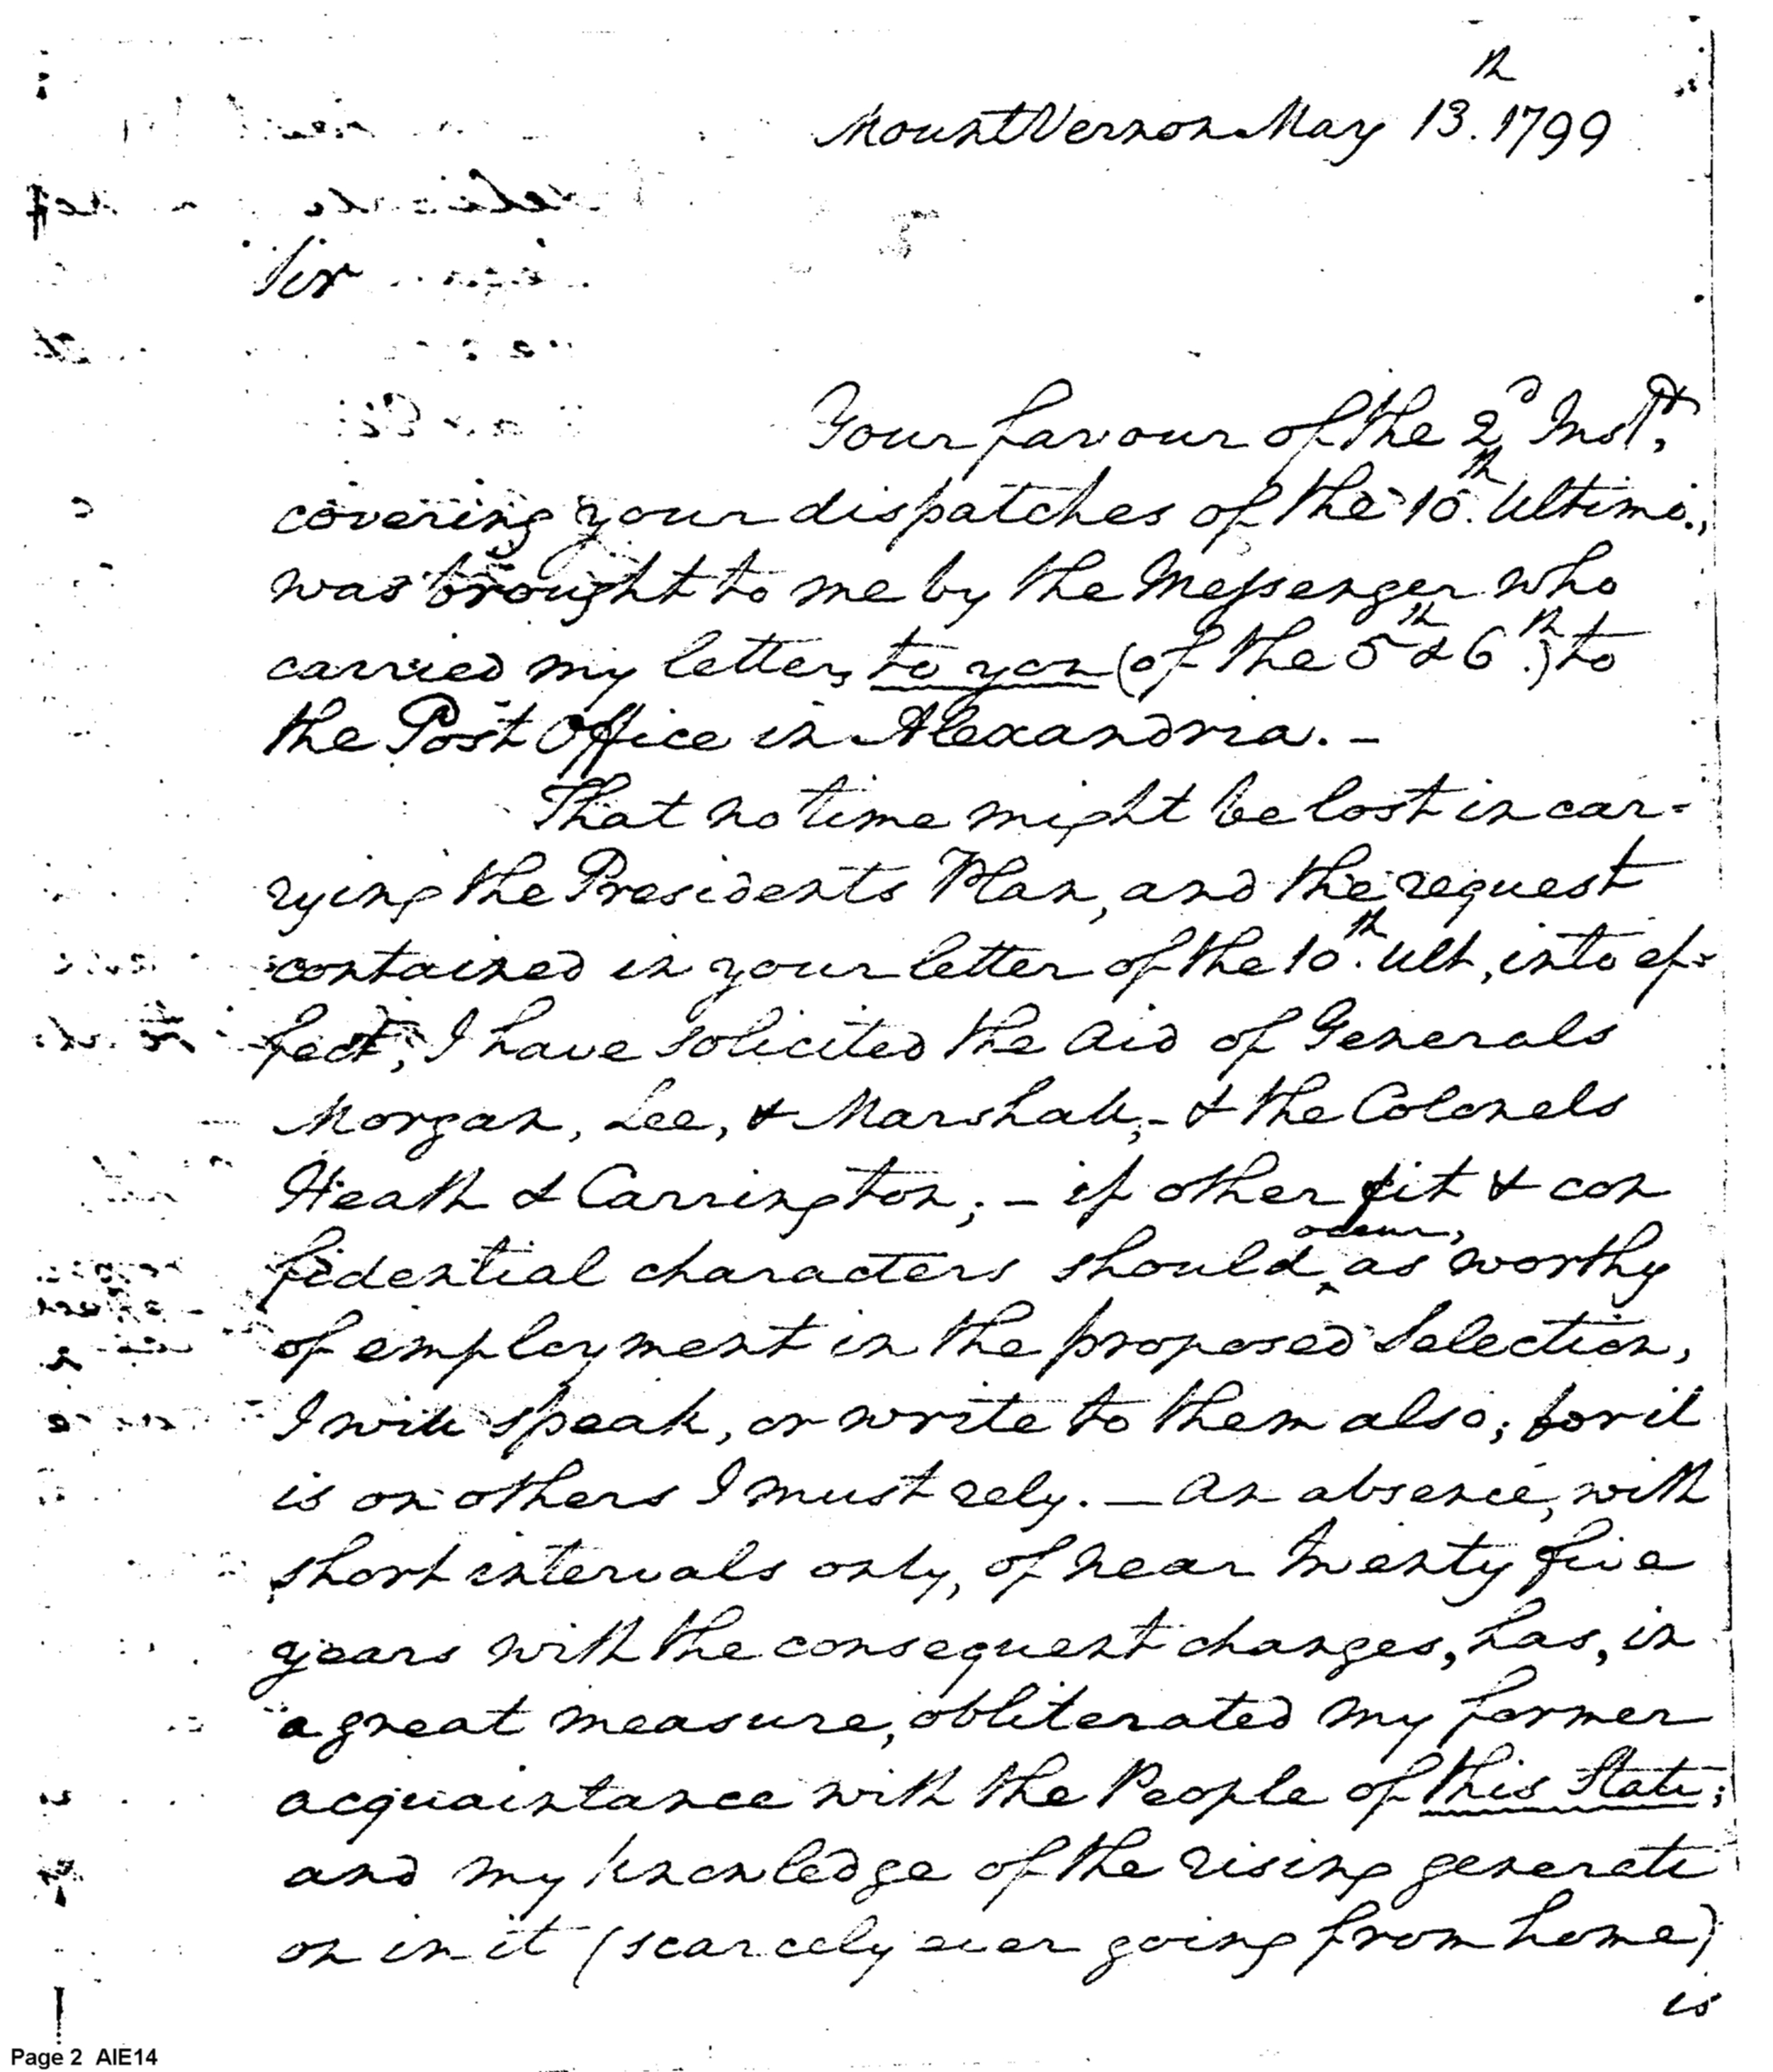 Mount Vernon May 13th. 1799
Sir
Your favour of the 2d Instt,
covering your dispatches of the 10th. Ultimo.,
was brought to me by the Messenger who
carried my letters to you (of the 5th & 6th.) to
the Post Office in Alexandria. –
That no time might be lost in car=
rying the Presidents Plan, and the request
contained in your letter of the 10th. ult, into ef=
fect, I have solicited the aid of Generals
Morgan, Lee, & Marshall, – & the Colonels
Heath & Carrington; – if other fit & con
fidential characters should occur, as worthy
of employment in the proposed Selection,
I will speak, or write to them also; for it
is on others I must rely. — An absence, with
short intervals only, of near twenty five
years with the consequent changes, has, in
a great measure, obliterated my former
acquaintance with the People of this State;
and my knowledge of the rising generati
on in it (scarcely ever going from home)
is
Page 2 AIE14